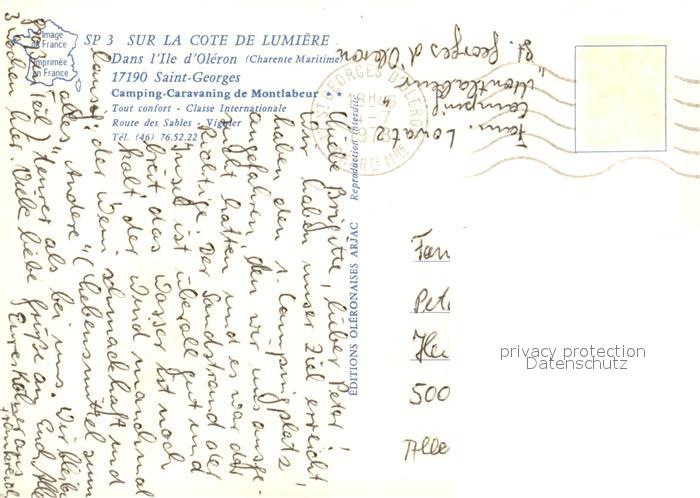 Image
de France
Imprimée
en France
SP 3 SUR LA COTE DE LUMIÈRE
Dans l'Ile d'Oléron (Charente Maritime)
17190 Saint-Georges
Camping-Caravaning de Montlabeur ★★
Tout confort - Classe Internationale
Route des Sables - Vignier
Tél. (46) 76.52.22
ÉDITIONS OLÉRONAISES ARJAC
Reproduction interdite
ST GEORGES D'OLERON
16H45
-7
1978
CHARTE MME
Fam.
Camping
"Montlabeur"
St. Georges d'Oléron
Liebe Brigitte, lieber Peter!
Wir haben unser Ziel erreicht
haben den 1. Campingplatz
angefahren, den wir uns ausge-
sucht hatten, und es war der
Richtige. Der Sandstrand der
Insel ist überall gut und
breit das Wasser ist noch
kalt, der Wind manchmal
der Wein schmackhaft und
alles "Andere" (Lebensmittel zum
großen Teil) teurer als bei uns. Wir bleiben
3 Wochen hier. Viele liebe Grüße an Euch Alle
Eure
Fam
Pet
He
500
Alle
privacy protection
Datenschutz